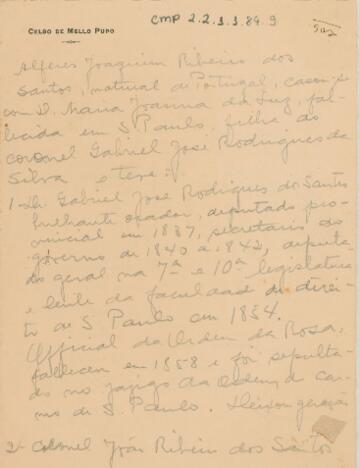 CMP 2.2.3.3.84.9
CELSO DE MELLO PUPO
Alferes Joaquim Ribeiro dos
Santos, natural de Portugal, casou-se
com D. Maria Joanna da Luz, fal-
lecida em S. Paulo, filha do
coronel Gabriel José Rodrigues da
Silva e teve:
1- Dr. Gabriel José Rodrigues dos Santos
brilhante orador, deputado pro-
vincial em 1837, secretario do
governo de 1840 a 1842, deputa-
do geral na 7ª e 10ª legislatura
e lente da faculdade de direi-
to de S. Paulo em 1854.
Official da Ordem da Rosa,
falleceu em 1858 e foi sepulta-
do no jazigo da Ordem do Car-
mo de S. Paulo. Deixou geração
2- Coronel João Ribeiro dos Santos